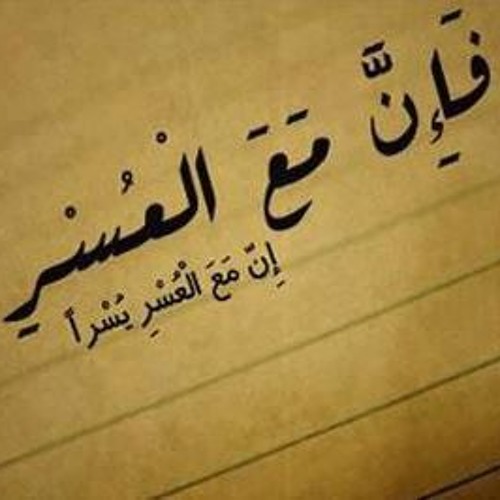 فَإِنَّ مَعَ الْعُسْرِ
إِنّ مَعَ الْعُسْرِ يُسْراً